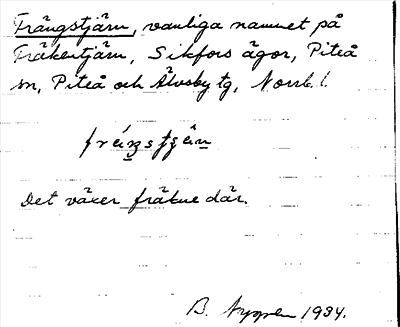 Frängstjärn, vanliga namnet på
Fräkentjärn, Sikfors ägor, Piteå
sn, Piteå och Älvsby tg, Norrb. l.
Det växer fräkne där.
B. Nygren 1934.